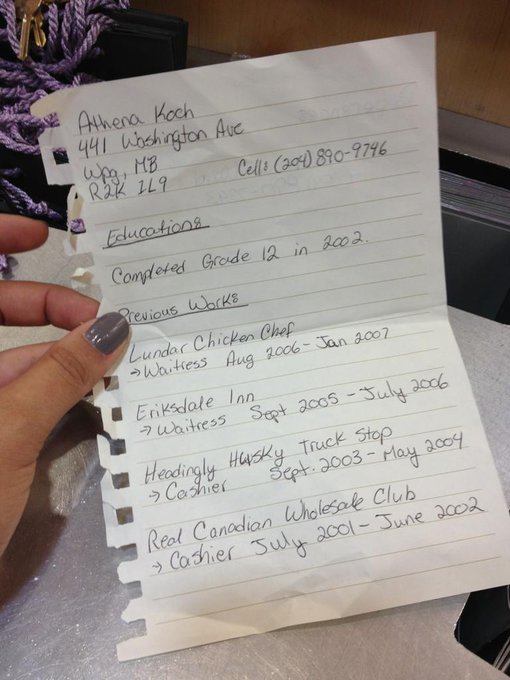 Athena Koch
441 Washington Ave
Wpg, MB
R2K 1L9
Cell: (204) 890-9746
Education:
Completed Grade 12 in 2002.
Previous Work:
Lundar Chicken Chef
→ Waitress Aug 2006 - Jan 2007
Eriksdale Inn
→ Waitress Sept 2005 - July 2006
Headingly Husky Truck Stop
→ Cashier Sept. 2003 - May 2004
Real Canadian Wholesale Club
→ Cashier July 2001 - June 2002